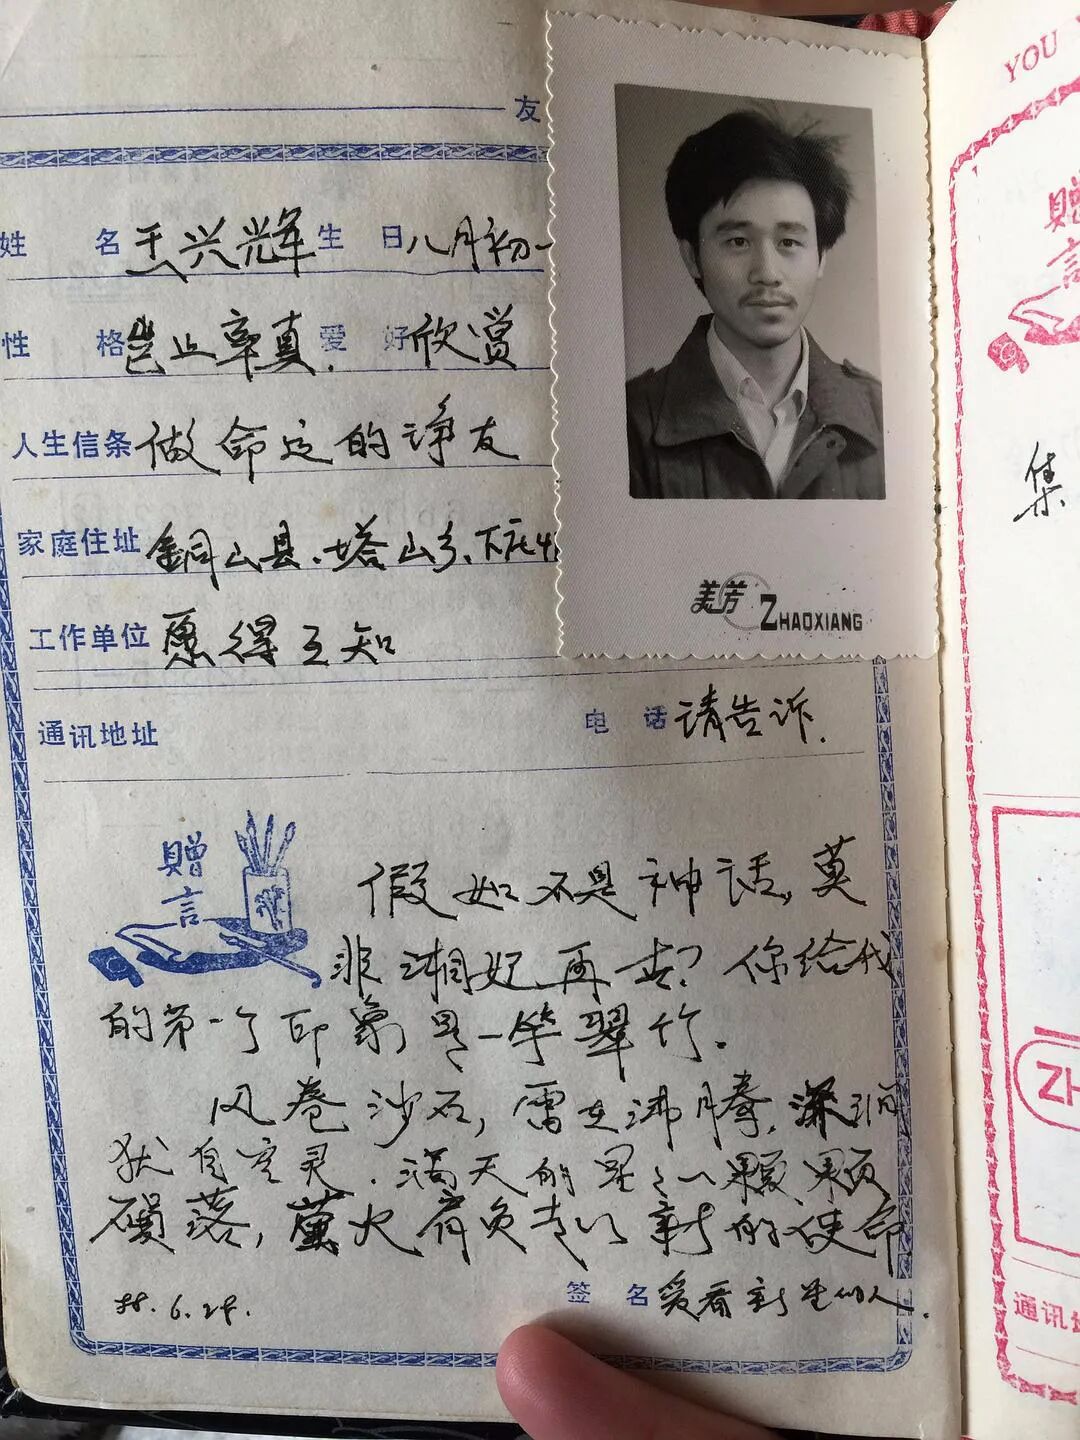 友
姓 名 王兴辉 生 日 八月初一
性 格 岂止率真. 爱 好 欣赏
人生信条 做命运的诤友
家庭住址 銅山县.塔山乡.下庄
工作单位 愿得互知
通讯地址 电 话 请告诉.
赠言
假如不是神话,莫
非湘妃再世?你给我
的第一个印象是一竿翠竹.
风卷沙石,雷在沸腾.深涧
犹自空灵.满天的星々一颗颗
殒落,萤火肩负起以新的使命
88.6.24. 签 名 爱看新生的人.
美芳 ZHAOXIANG
YOU
赠言
集
ZH
通讯地